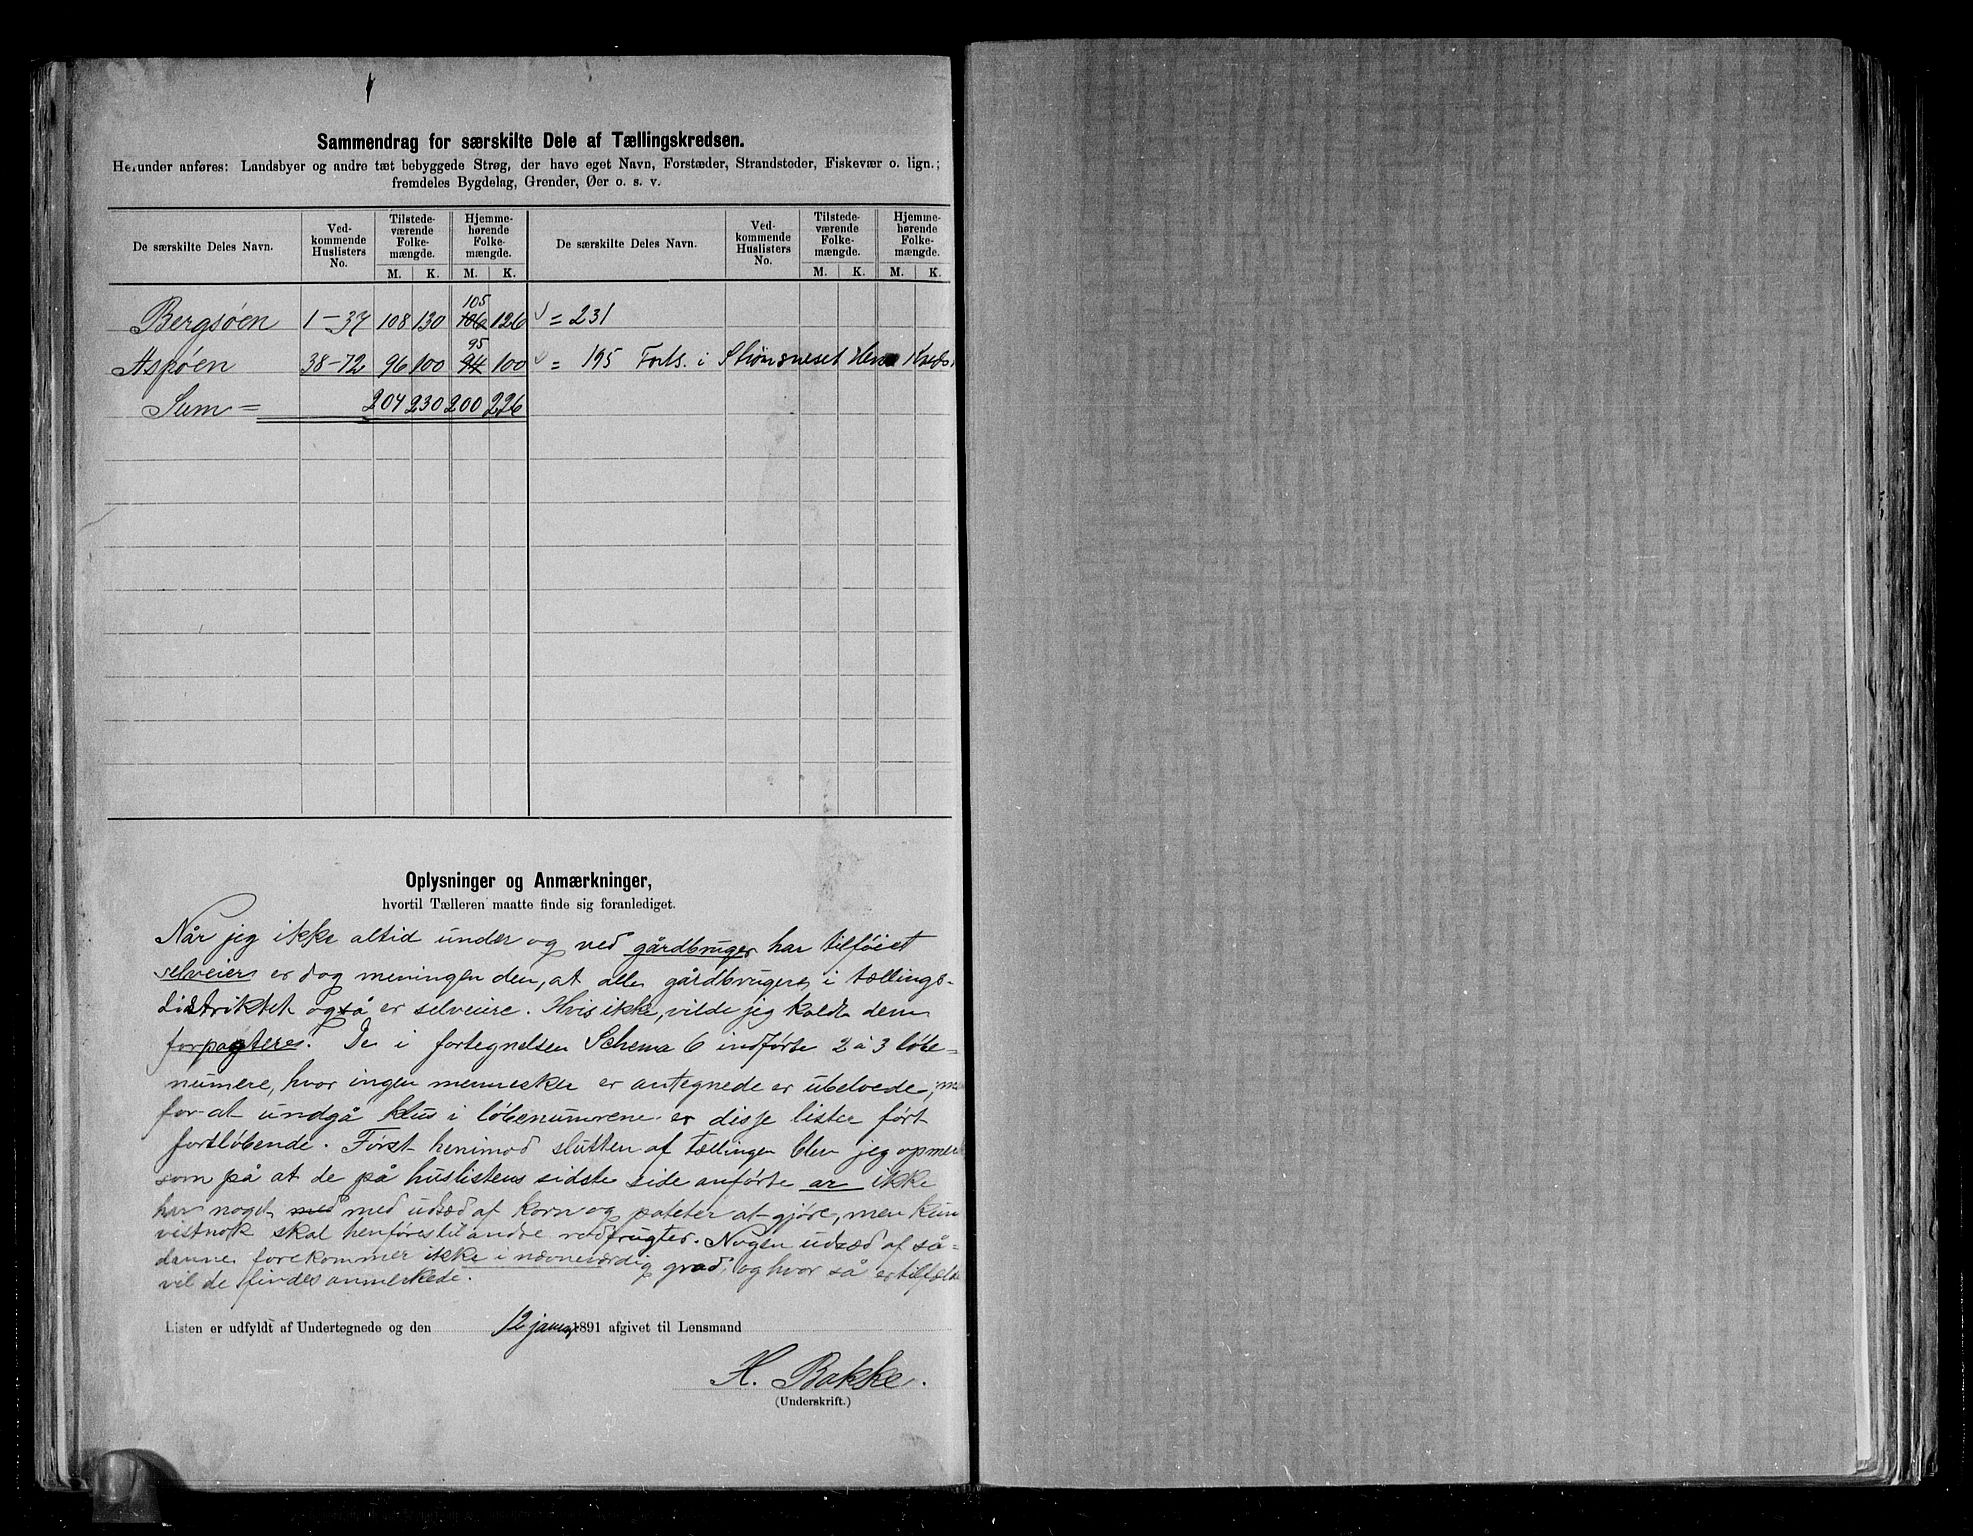 Sammendrag for særskilte Dele af Tællingskredsen.
Herunder anføres: Landsbyer og andre tæt bebyggede Strøg, der have eget Navn, Forstæder, Strandsteder, Fiskevær o. lign.;
fremdeles Bygdelag, Grender, Øer o. s. v.
De særskilte Deles Navn. Ved-kommende Huslisters No. Tilstede-værende Folke-mængde. Hjemme-hørende Folke-mængde. De særskilte Deles Navn. Ved-kommende Huslisters No. Tilstede-værende Folke-mængde. Hjemme-hørende Folke-mængde.
M. K. M. K. M. K. M. K.
105
Bergsøen 1-37 108 130 106 126 = 231
95
Aspøen 38-72 96 100 94 100 = 195 Forts. i Strømsneset
Sum = 204 230 200 226
Oplysninger og Anmærkninger,
hvortil Tælleren maatte finde sig foranlediget.
Når jeg ikke altid under og ved gårdbruger har tilføiet
selveier er dog meningen den, at alle gårdbrugere i tællings-
distriktet også er selveiere. Hvis ikke, vilde jeg kaldt dem
forpagtere. De i fortegnelsen Schema 6 indførte 2 à 3 løbe-
numere, hvor ingen mennesker er antegnede er ubeboede,
for at undgå klus i løbenumrene er disse lister ført
fortløbende. Først henimod slutten af tællingen blev jeg opmerk
som på at de på huslistens sidste side anførte ar ikke
har noget med med udsæd af korn og poteter at gjøre, men kun
vistnok skal henføres til andre rodfrugter. Nogen udsæd af så-
danne forekommer ikke i nævneværdig grad, og hvor så er tilfældet
vil de findes anmerkede.
Listen er udfyldt af Undertegnede og den 12 januar 1891 afgivet til Lensmand
H. Bakke.
(Underskrift.)